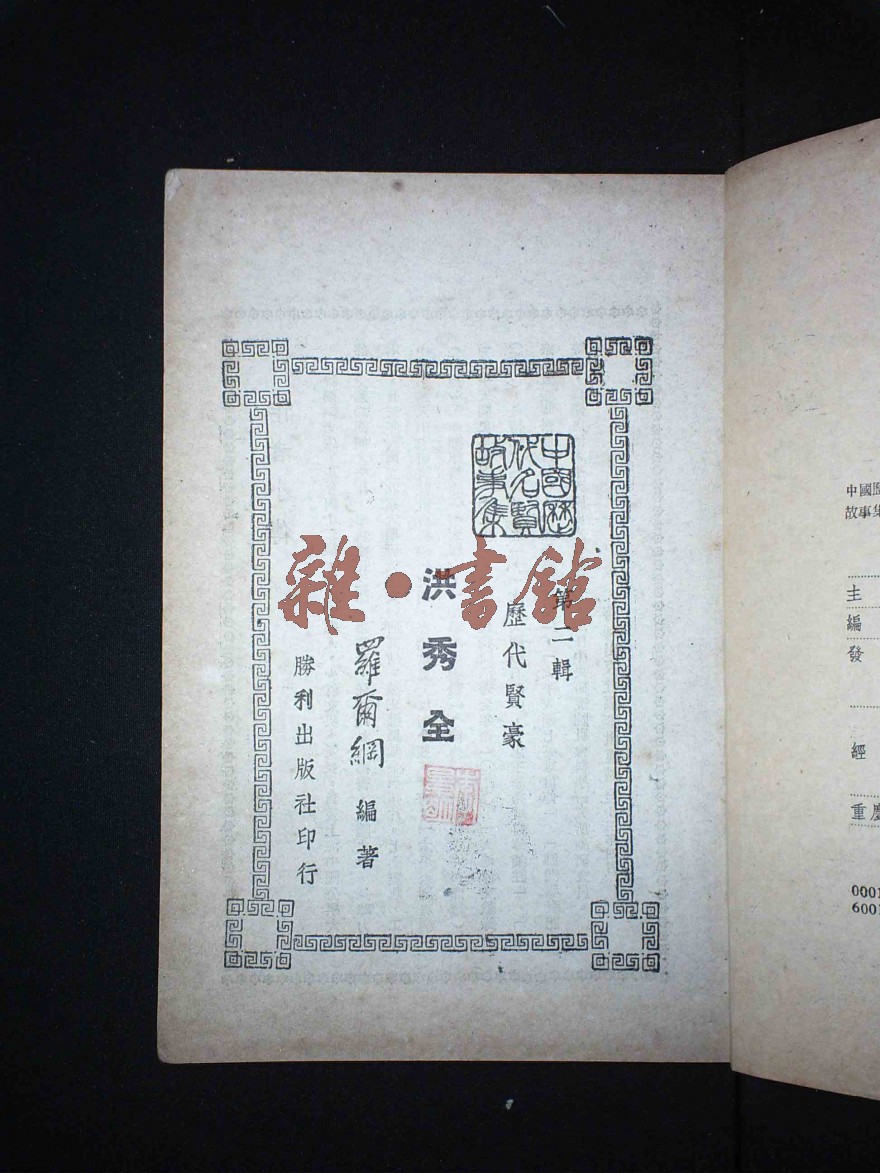 中國歷
代名賢
故事集
第二輯
歷代賢豪
洪秀全
羅爾綱 編著
勝利出版社印行
雜·書館
中國歷
故事集
主
編
發
經
重慶
0001
6001